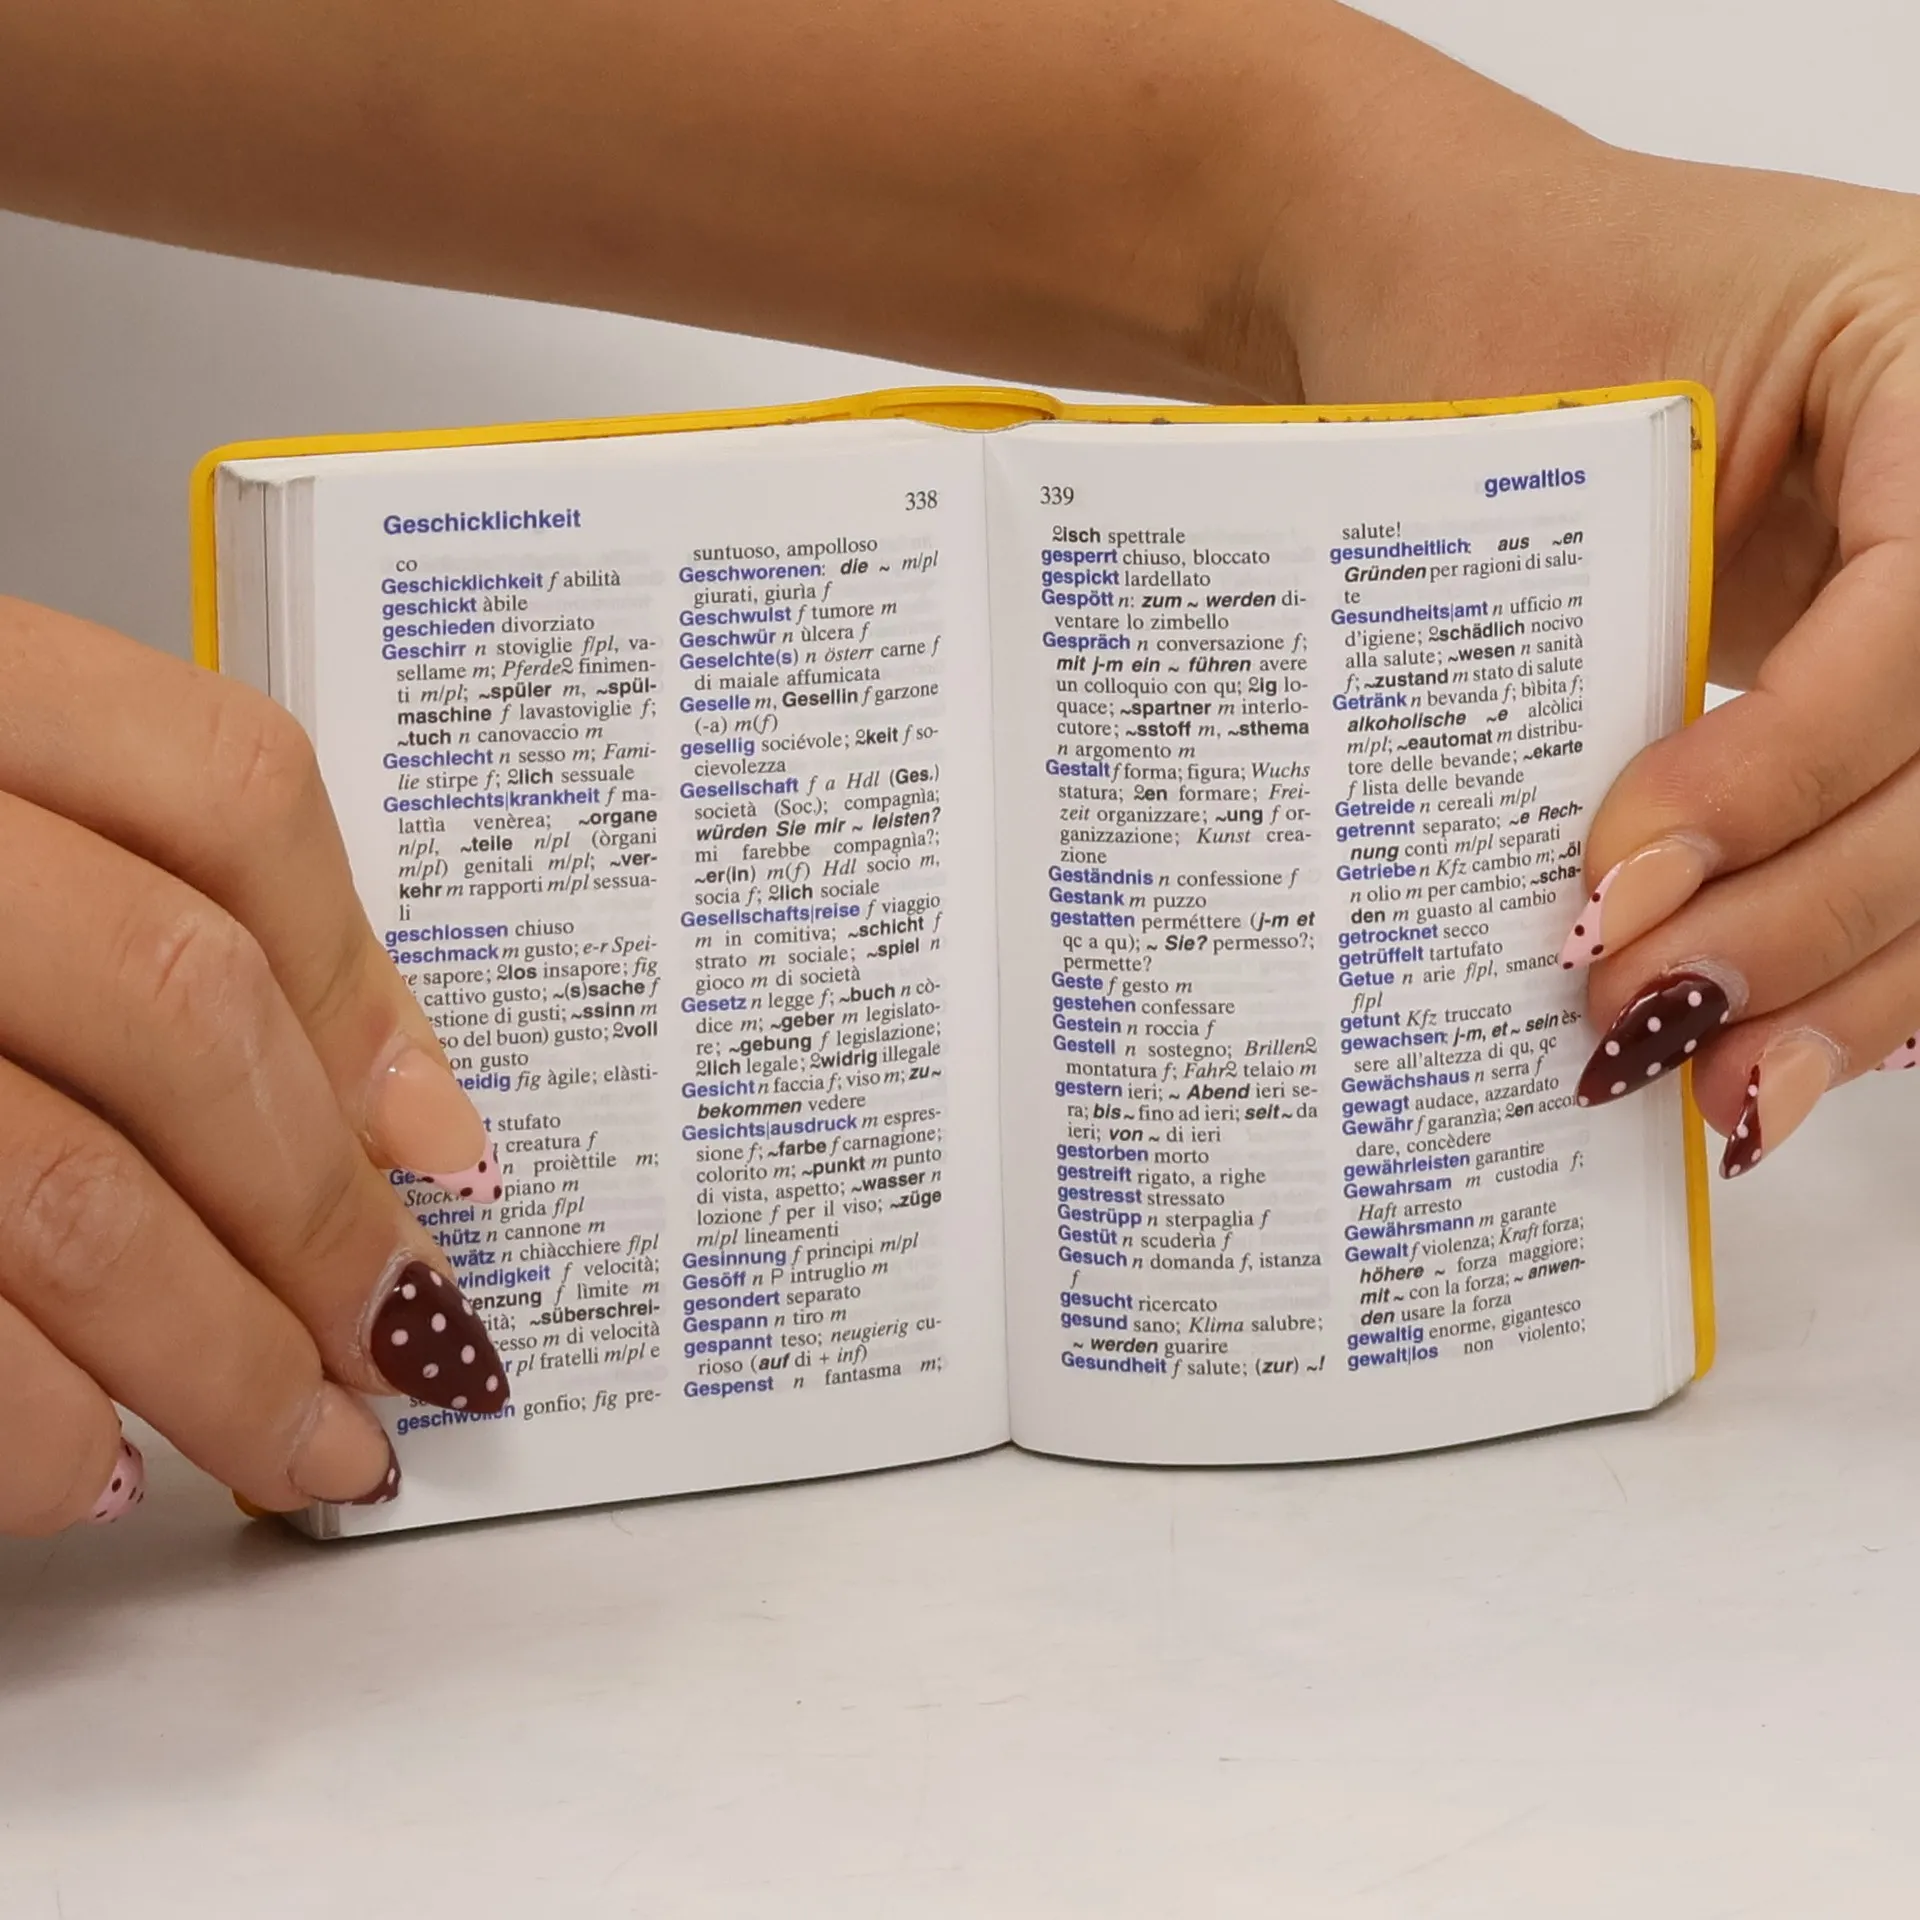 Geschicklichkeit
338
co
Geschicklichkeit f abilità
geschickt àbile
geschieden divorziato
Geschirr n stoviglie f/pl, va-
sellame m; Pferde⁓ finimen-
ti m/pl; ~spüler m, ~spül-
maschine f lavastoviglie f;
~tuch n canovaccio m
Geschlecht n sesso m; Fami-
lie stirpe f; ⁓lich sessuale
Geschlechts|krankheit f ma-
lattìa venèrea; ~organe
n/pl, ~teile n/pl (òrgani
m/pl) genitali m/pl; ~ver-
kehr m rapporti m/pl sessua-
li
geschlossen chiuso
Geschmack m gusto; e-r Spei-
se sapore; ⁓los insapore; fig
cattivo gusto; ~(s)sache f
stione di gusti; ~ssinn m
so del buon) gusto; ⁓voll
on gusto
eidig fig àgile; elàsti-
t stufato
creatura f
n proièttile m;
piano m
schrei n grida f/pl
hütz n cannone m
wätz n chiàcchiere f/pl
windigkeit f velocità;
enzung f lìmite m
ità; ~süberschrei-
cesso m di velocità
r pl fratelli m/pl e
geschwollen gonfio; fig pre-
suntuoso, ampolloso
Geschworenen: die ~ m/pl
giurati, giurìa f
Geschwulst f tumore m
Geschwür n ùlcera f
Geselchte(s) n österr carne f
di maiale affumicata
Geselle m, Gesellin f garzone
(-a) m(f)
gesellig sociévole; ⁓keit f so-
cievolezza
Gesellschaft f a Hdl (Ges.)
società (Soc.); compagnìa;
würden Sie mir ~ leisten?
mi farebbe compagnìa?;
~er(in) m(f) Hdl socio m,
socia f; ⁓lich sociale
Gesellschafts|reise f viaggio
m in comitiva; ~schicht f
strato m sociale; ~spiel n
gioco m di società
Gesetz n legge f; ~buch n cò-
dice m; ~geber m legislato-
re; ~gebung f legislazione;
⁓lich legale; ⁓widrig illegale
Gesicht n faccia f; viso m; zu ~
bekommen vedere
Gesichts|ausdruck m espres-
sione f; ~farbe f carnagione;
colorito m; ~punkt m punto
di vista, aspetto; ~wasser n
lozione f per il viso; ~züge
m/pl lineamenti
Gesinnung f principi m/pl
Gesöff n P intruglio m
gesondert separato
Gespann n tiro m
gespannt teso; neugierig cu-
rioso (auf di + inf)
Gespenst n fantasma m;
339
gewaltlos
⁓isch spettrale
gesperrt chiuso, bloccato
gespickt lardellato
Gespött n: zum ~ werden di-
ventare lo zimbello
Gespräch n conversazione f;
mit j-m ein ~ führen avere
un colloquio con qu; ⁓ig lo-
quace; ~spartner m interlo-
cutore; ~sstoff m, ~sthema
n argomento m
Gestalt f forma; figura; Wuchs
statura; ⁓en formare; Frei-
zeit organizzare; ~ung f or-
ganizzazione; Kunst crea-
zione
Geständnis n confessione f
Gestank m puzzo
gestatten perméttere (j-m et
qc a qu); ~ Sie? permesso?;
permette?
Geste f gesto m
gestehen confessare
Gestein n roccia f
Gestell n sostegno; Brillen⁓
montatura f; Fahr⁓ telaio m
gestern ieri; ~ Abend ieri se-
ra; bis ~ fino ad ieri; seit ~ da
ieri; von ~ di ieri
gestorben morto
gestreift rigato, a righe
gestresst stressato
Gestrüpp n sterpaglia f
Gestüt n scuderìa f
Gesuch n domanda f, istanza
f
gesucht ricercato
gesund sano; Klima salubre;
~ werden guarire
Gesundheit f salute; (zur) ~!
salute!
gesundheitlich: aus ~en
Gründen per ragioni di salu-
te
Gesundheits|amt n ufficio m
d'igiene; ⁓schädlich nocivo
alla salute; ~wesen n sanità
f; ~zustand m stato di salute
Getränk n bevanda f; bìbita f;
alkoholische ~e alcòlici
m/pl; ~eautomat m distribu-
tore delle bevande; ~ekarte
f lista delle bevande
Getreide n cereali m/pl
getrennt separato; ~e Rech-
nung conti m/pl separati
Getriebe n Kfz cambio m; ~öl
n olio m per cambio; ~scha-
den m guasto al cambio
getrocknet secco
getrüffelt tartufato
Getue n arie f/pl, smance
f/pl
getunt Kfz truccato
gewachsen: j-m, et ~ sein ès-
sere all'altezza di qu, qc
Gewächshaus n serra f
gewagt audace, azzardato
Gewähr f garanzìa; ⁓en accor-
dare, concèdere
gewährleisten garantire
Gewahrsam m custodia f;
Haft arresto
Gewährsmann m garante
Gewalt f violenza; Kraft forza;
höhere ~ forza maggiore;
mit ~ con la forza; ~ anwen-
den usare la forza
gewaltig enorme, gigantesco
gewalt|los non violento;